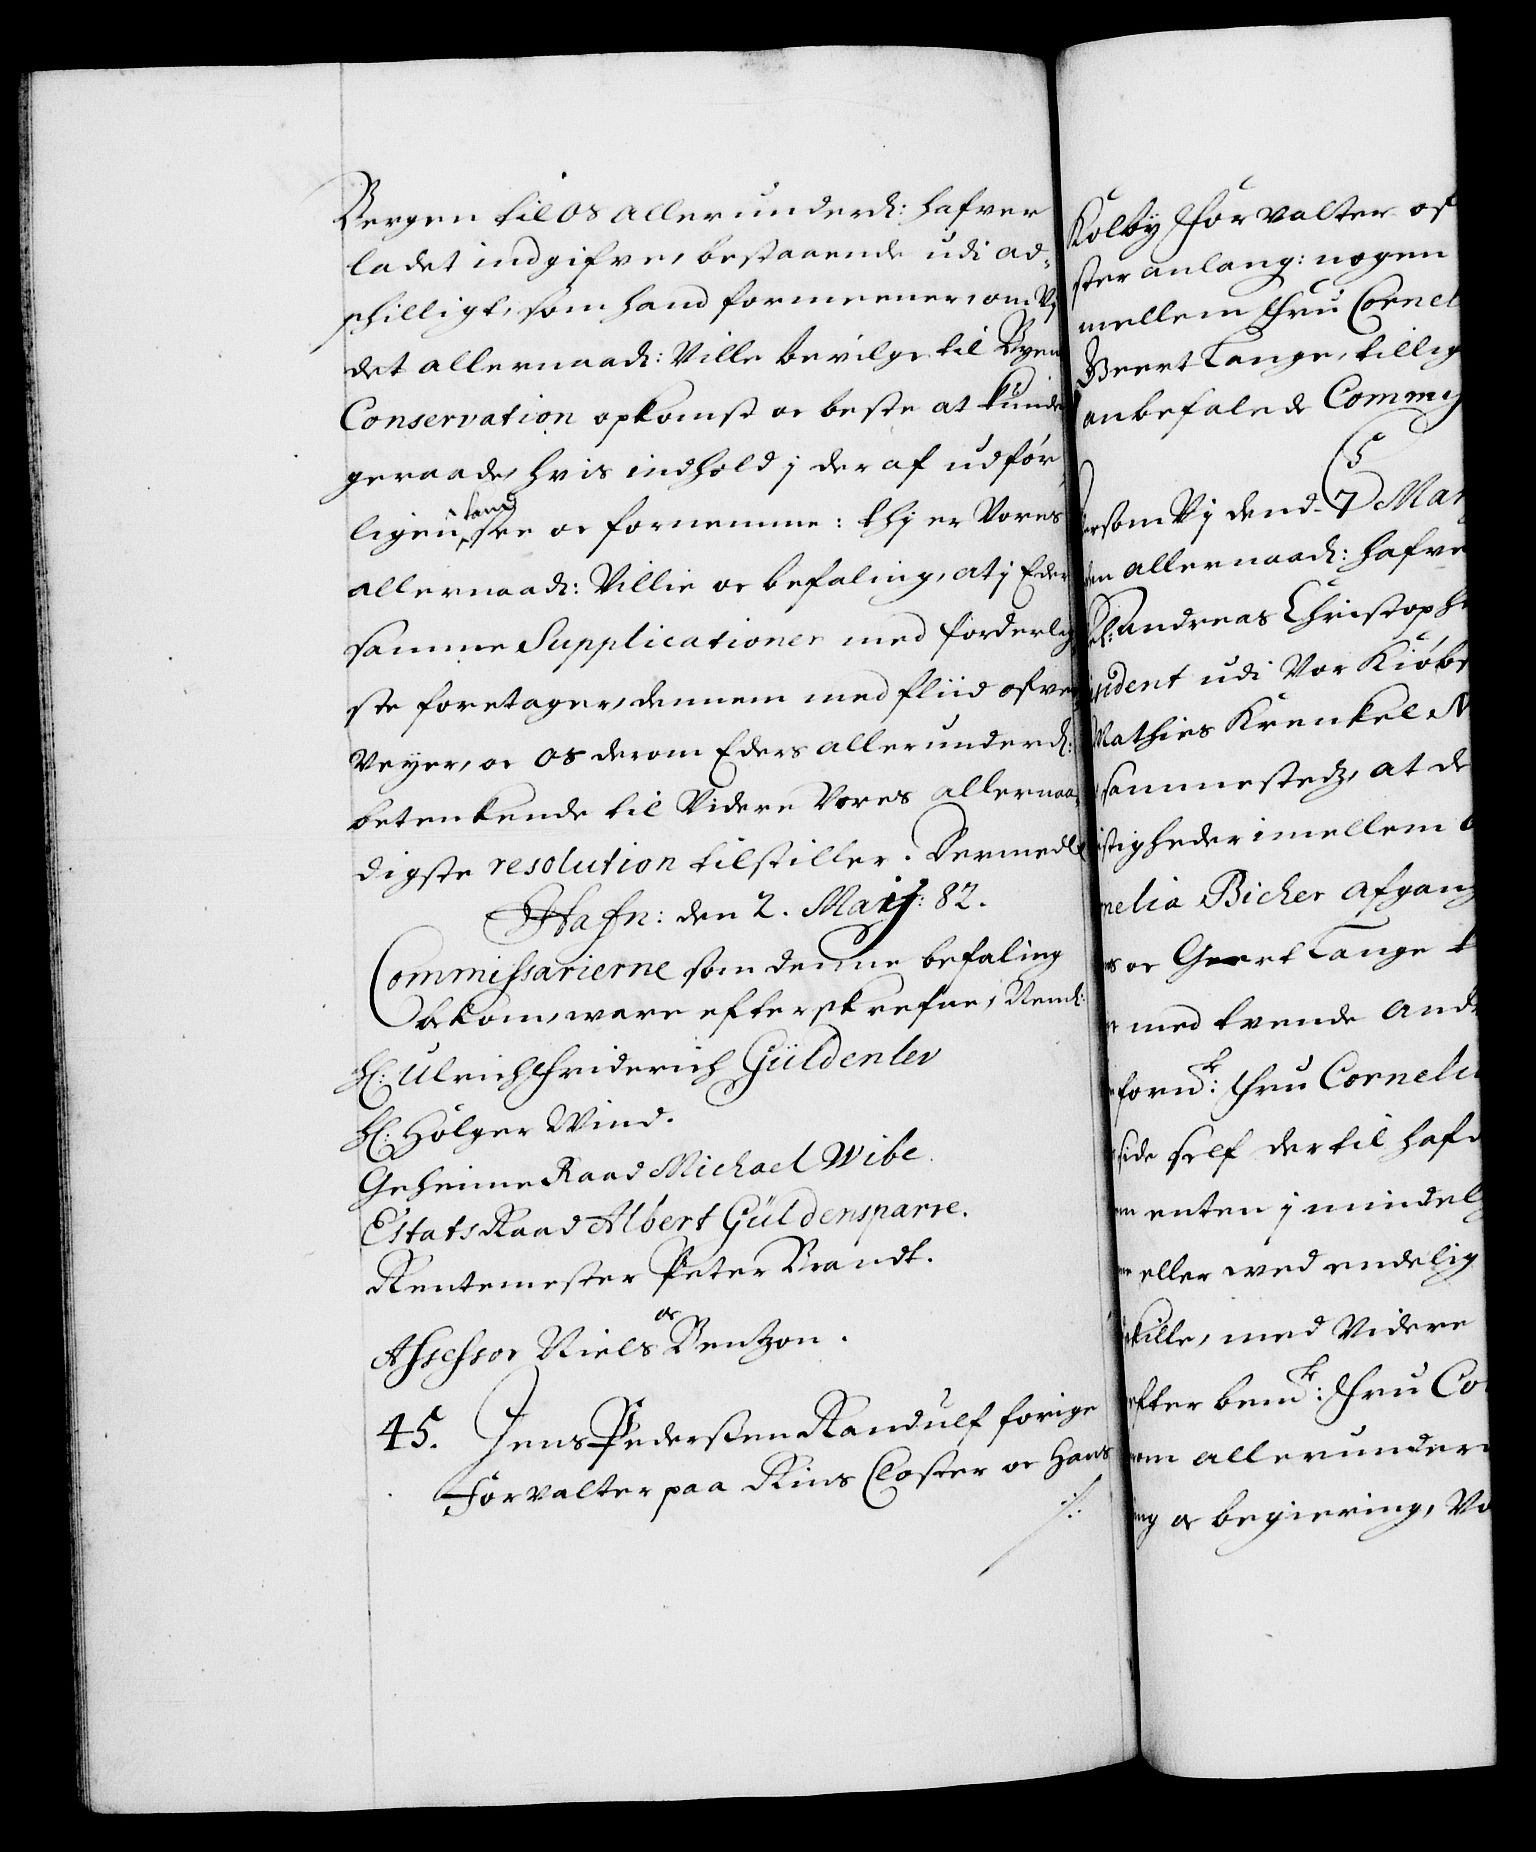 Bergen til os allerunderd: hafver
ladet indgifve, bestaaende udi ad-
skilligt, som hand formeener, om Vj
det allernaad: Ville bevilge til Byens
Conservation opkomst oc beste at kunde
geraade, hvis indhold j der af udfør-
ligen kand see oc fornemme: thj er Vores
allernaad: Villie oc befaling, at j Eder
samme Supplicationer med forderlig-
ste foretager, dennem med fliid ofver-
Veyer, oc os derom Eders allerunderd:
betenkende til Videre Vores allernaa-
digste resolution tilstiller. Dermed
Hafn: den 2. Maij: 82.
Commissarierne som denne befaling
bekom, ware efterskrefne, Neml:
H: Ulrich Friderich Güldenlev
H: Holger Wind.
Geheime Raad Michael Wibe.
Estats Raad Albert Güldensparre.
Rentemester Peter Brandt.
oc
Assessor Niels Bentzon.
45. Jens Pedersen Randulf forige
Forvalter paa Rins Closter oc Hans
./.
Kolby Forvalter of
ster anlang: nogen
mellem Fru Cornel
Geert Lange, tillig
anbefalede Commiss
C5
ersom Vj dend 7 Mar
den allernaad: hafve
el: Andreas Christoph
sident udi Vor Kiøbs
Mathies Krenkel
sammestedz, at de
istigheder imellem
nelia Bicher afgang
es oc Geert Lange
med tvende and
fornd: Fru Cornelia
side self dertil hafv
enten j mindelig
eller wed endelig
skille, med Videre
efter bemd: Fru Cor
allerunder
ng oc begiering, Vo